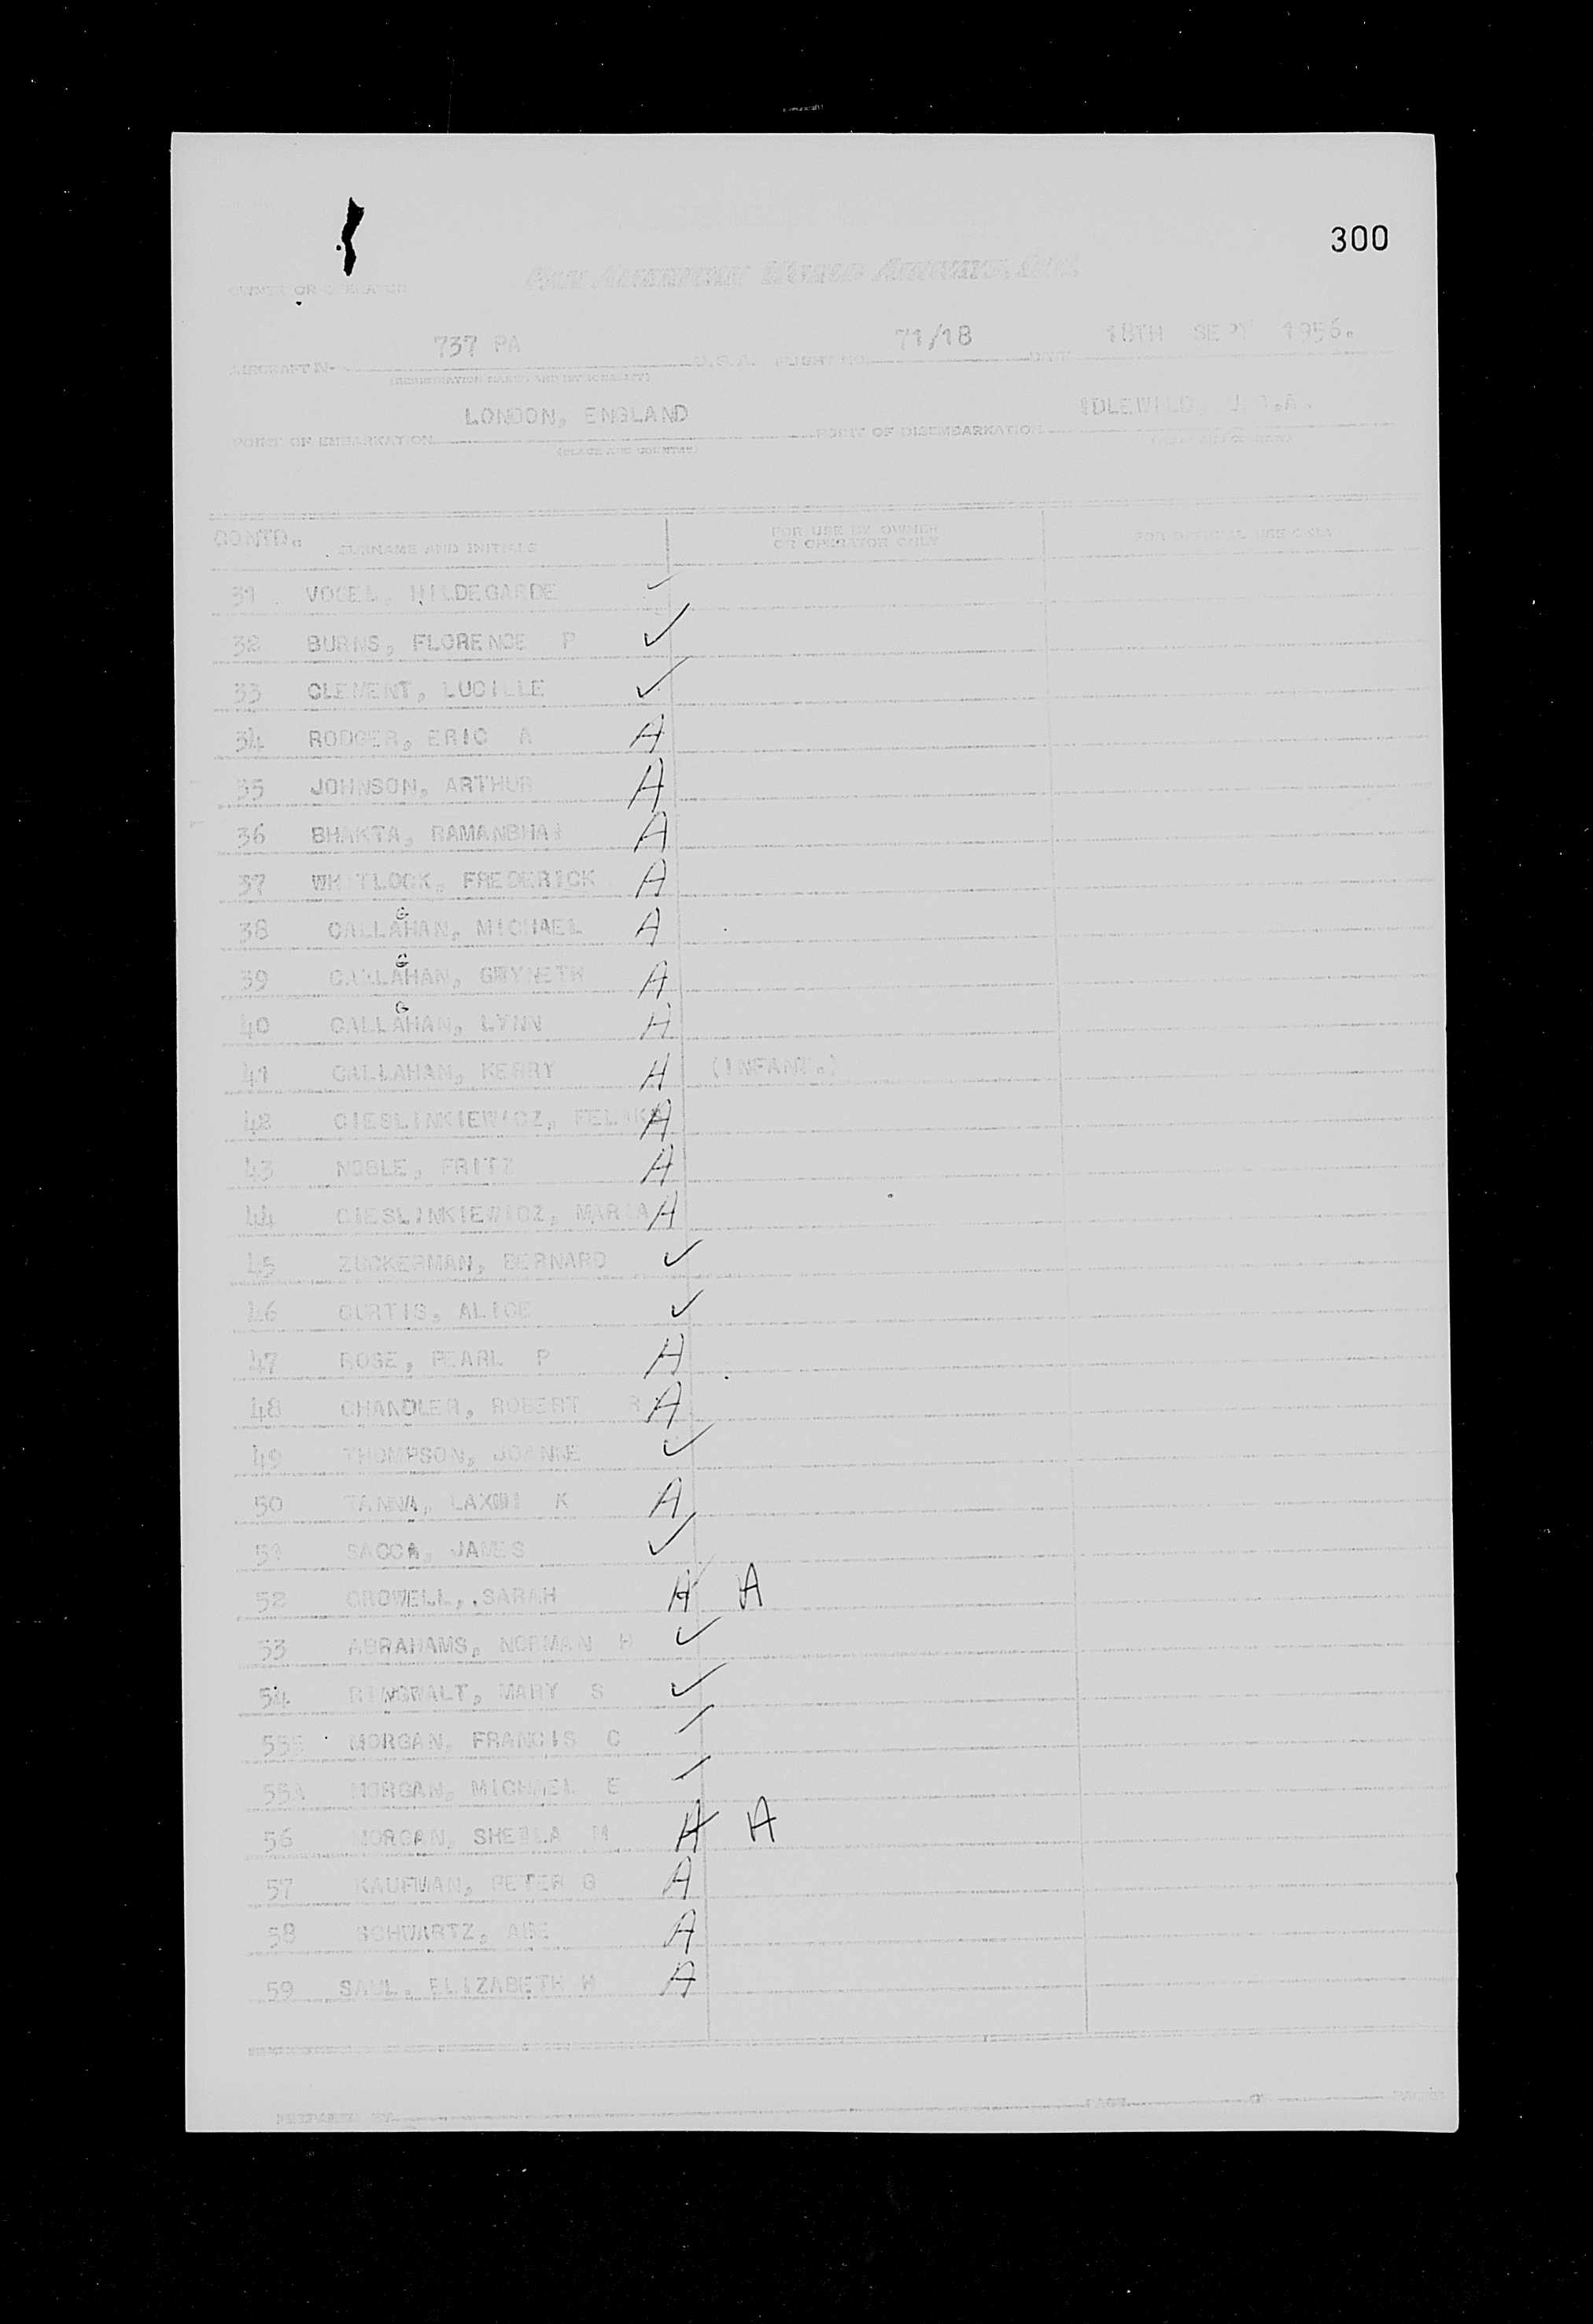 300
OWNER OR OPERATOR PAN AMERICAN WORLD AIRWAYS, INC.
AIRCRAFT 737 PA U.S.A. FLIGHT NO. 71/18 DATE 18TH SEPT 1956.
(REGISTRATION MARKS AND NATIONALITY)
POINT OF EMBARKATION LONDON, ENGLAND POINT OF DISEMBARKATION IDLEWILD, U.S.A.
(PLACE AND COUNTRY) (PLACE AND COUNTRY)
CONTD. SURNAME AND INITIALS FOR USE BY OWNER OR OPERATOR ONLY FOR OFFICIAL USE ONLY
31 VOGEL, HILDEGARDE ✓
32 BURNS, FLORENCE P ✓
33 CLEMENT, LUCILLE ✓
34 RODGER, ERIC A A
35 JOHNSON, ARTHUR A
36 BHAKTA, RAMANBHAI A
37 WHITLOCK, FREDERICK A
G
38 CALLAHAN, MICHAEL A
G
39 CALLAHAN, GWYNETH A
G
40 CALLAHAN, LYNN A
41 CALLAHAN, KERRY A (INFANT.)
42 CIESLINKIEWICZ, A
43 NOBLE, FRITZ A
44 CIESLINKIEWICZ, MARIA A
45 ZUCKERMAN, BERNARD ✓
46 CURTIS, ALICE ✓
47 ROSE, PEARL P A
48 CHANDLER, ROBERT R A
49 THOMPSON, JOANNE ✓
50 TANNA, LAXMI K A
51 SACCA, JAMES ✓
52 CROWELL, SARAH A A
53 ABRAHAMS, NORMAN H ✓
54 RINGWALT, MARY S ✓
55 MORGAN, FRANCIS C
55A MORGAN, MICHAEL E
56 MORGAN, SHEILA M A A
57 KAUFMAN, PETER G A
58 SCHWARTZ, ABE A
59 SAUL, ELIZABETH W A
PREPARED BY